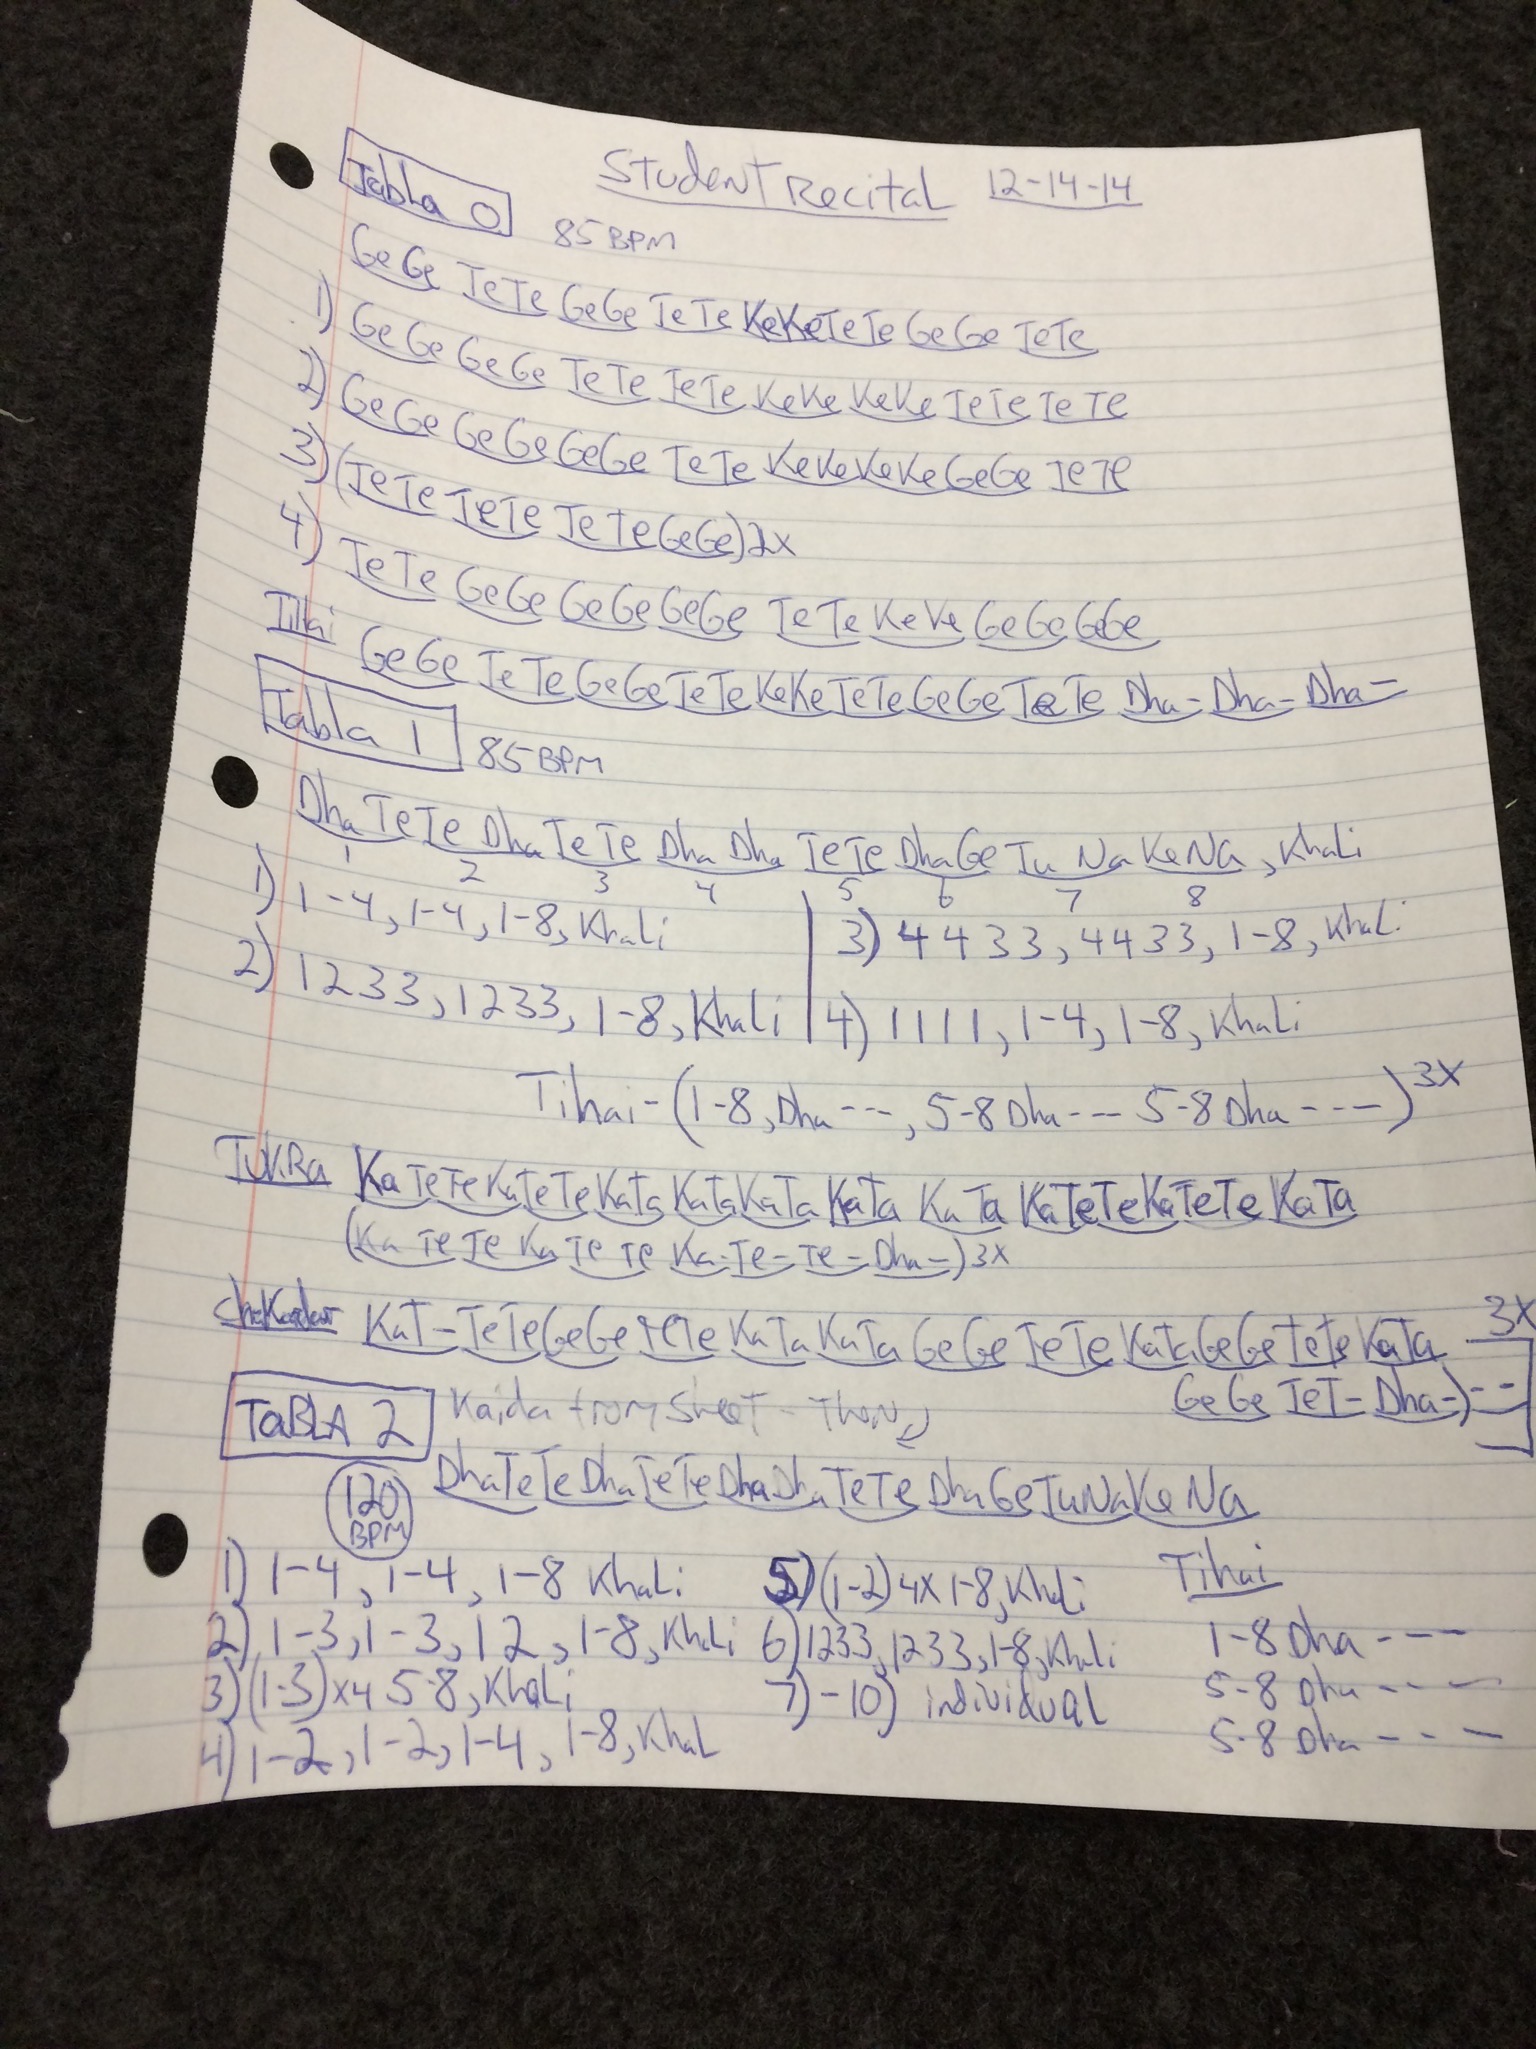 Student Recital 12-14-14
Tabla 0 85 BPM
GeGe TeTe GeGe TeTe KeKe TeTe GeGe TeTe
1) GeGe GeGe TeTe TeTe KeKe KeKe TeTe TeTe
2) GeGe GeGe GeGe TeTe KeKe KeKe GeGe TeTe
3) (TeTe TeTe TeTe GeGe) 2x
4) TeTe GeGe GeGe GeGe TeTe KeKe GeGe GeGe
Tihai GeGe TeTe GeGe TeTe KeKe TeTe GeGe TeTe Dha- Dha- Dha-
Tabla 1 85 BPM
DhaTeTe Dha TeTe Dha Dha TeTe DhaGe Tu Na KeNa, Khali
1 2 3 4 5 6 7 8
1) 1-4, 1-4, 1-8, Khali
2) 1233, 1233, 1-8, Khali
3) 4433, 4433, 1-8, Khali
4) 1111, 1-4, 1-8, Khali
Tihai - (1-8, Dha ---, 5-8 Dha --- 5-8 Dha ----) 3x
TuKRa KaTeTeKaTeTe KaTa KaTaKaTa KaTa KaTa KaTeTeKaTeTe KaTa
(Ka TeTe Ka Te Te Ka-Te-Te-Dha-) 3x
KaT-TeTeGeGeTeTe KaTa KaTa GeGe TeTe KaTaGeGeTeTe KaTa 3x
GeGe TeT- Dha-) --
TaBLA 2 Kaida from Sheet - Then
120 BPM
DhaTeTeDhaTeTeDhaDhaTeTeDhaGeTuNaKeNa
1) 1-4, 1-4, 1-8 Khali
2) 1-3, 1-3, 12, 1-8, Khali
3) (1-3)x4 5-8, Khali
4) 1-2, 1-2, 1-4, 1-8, Khal
5) (1-2)4x 1-8, Khali
6) 1233, 1233, 1-8, Khali
7)-10) individual
Tihai
1-8 Dha ---
5-8 Dha ---
5-8 Dha ---